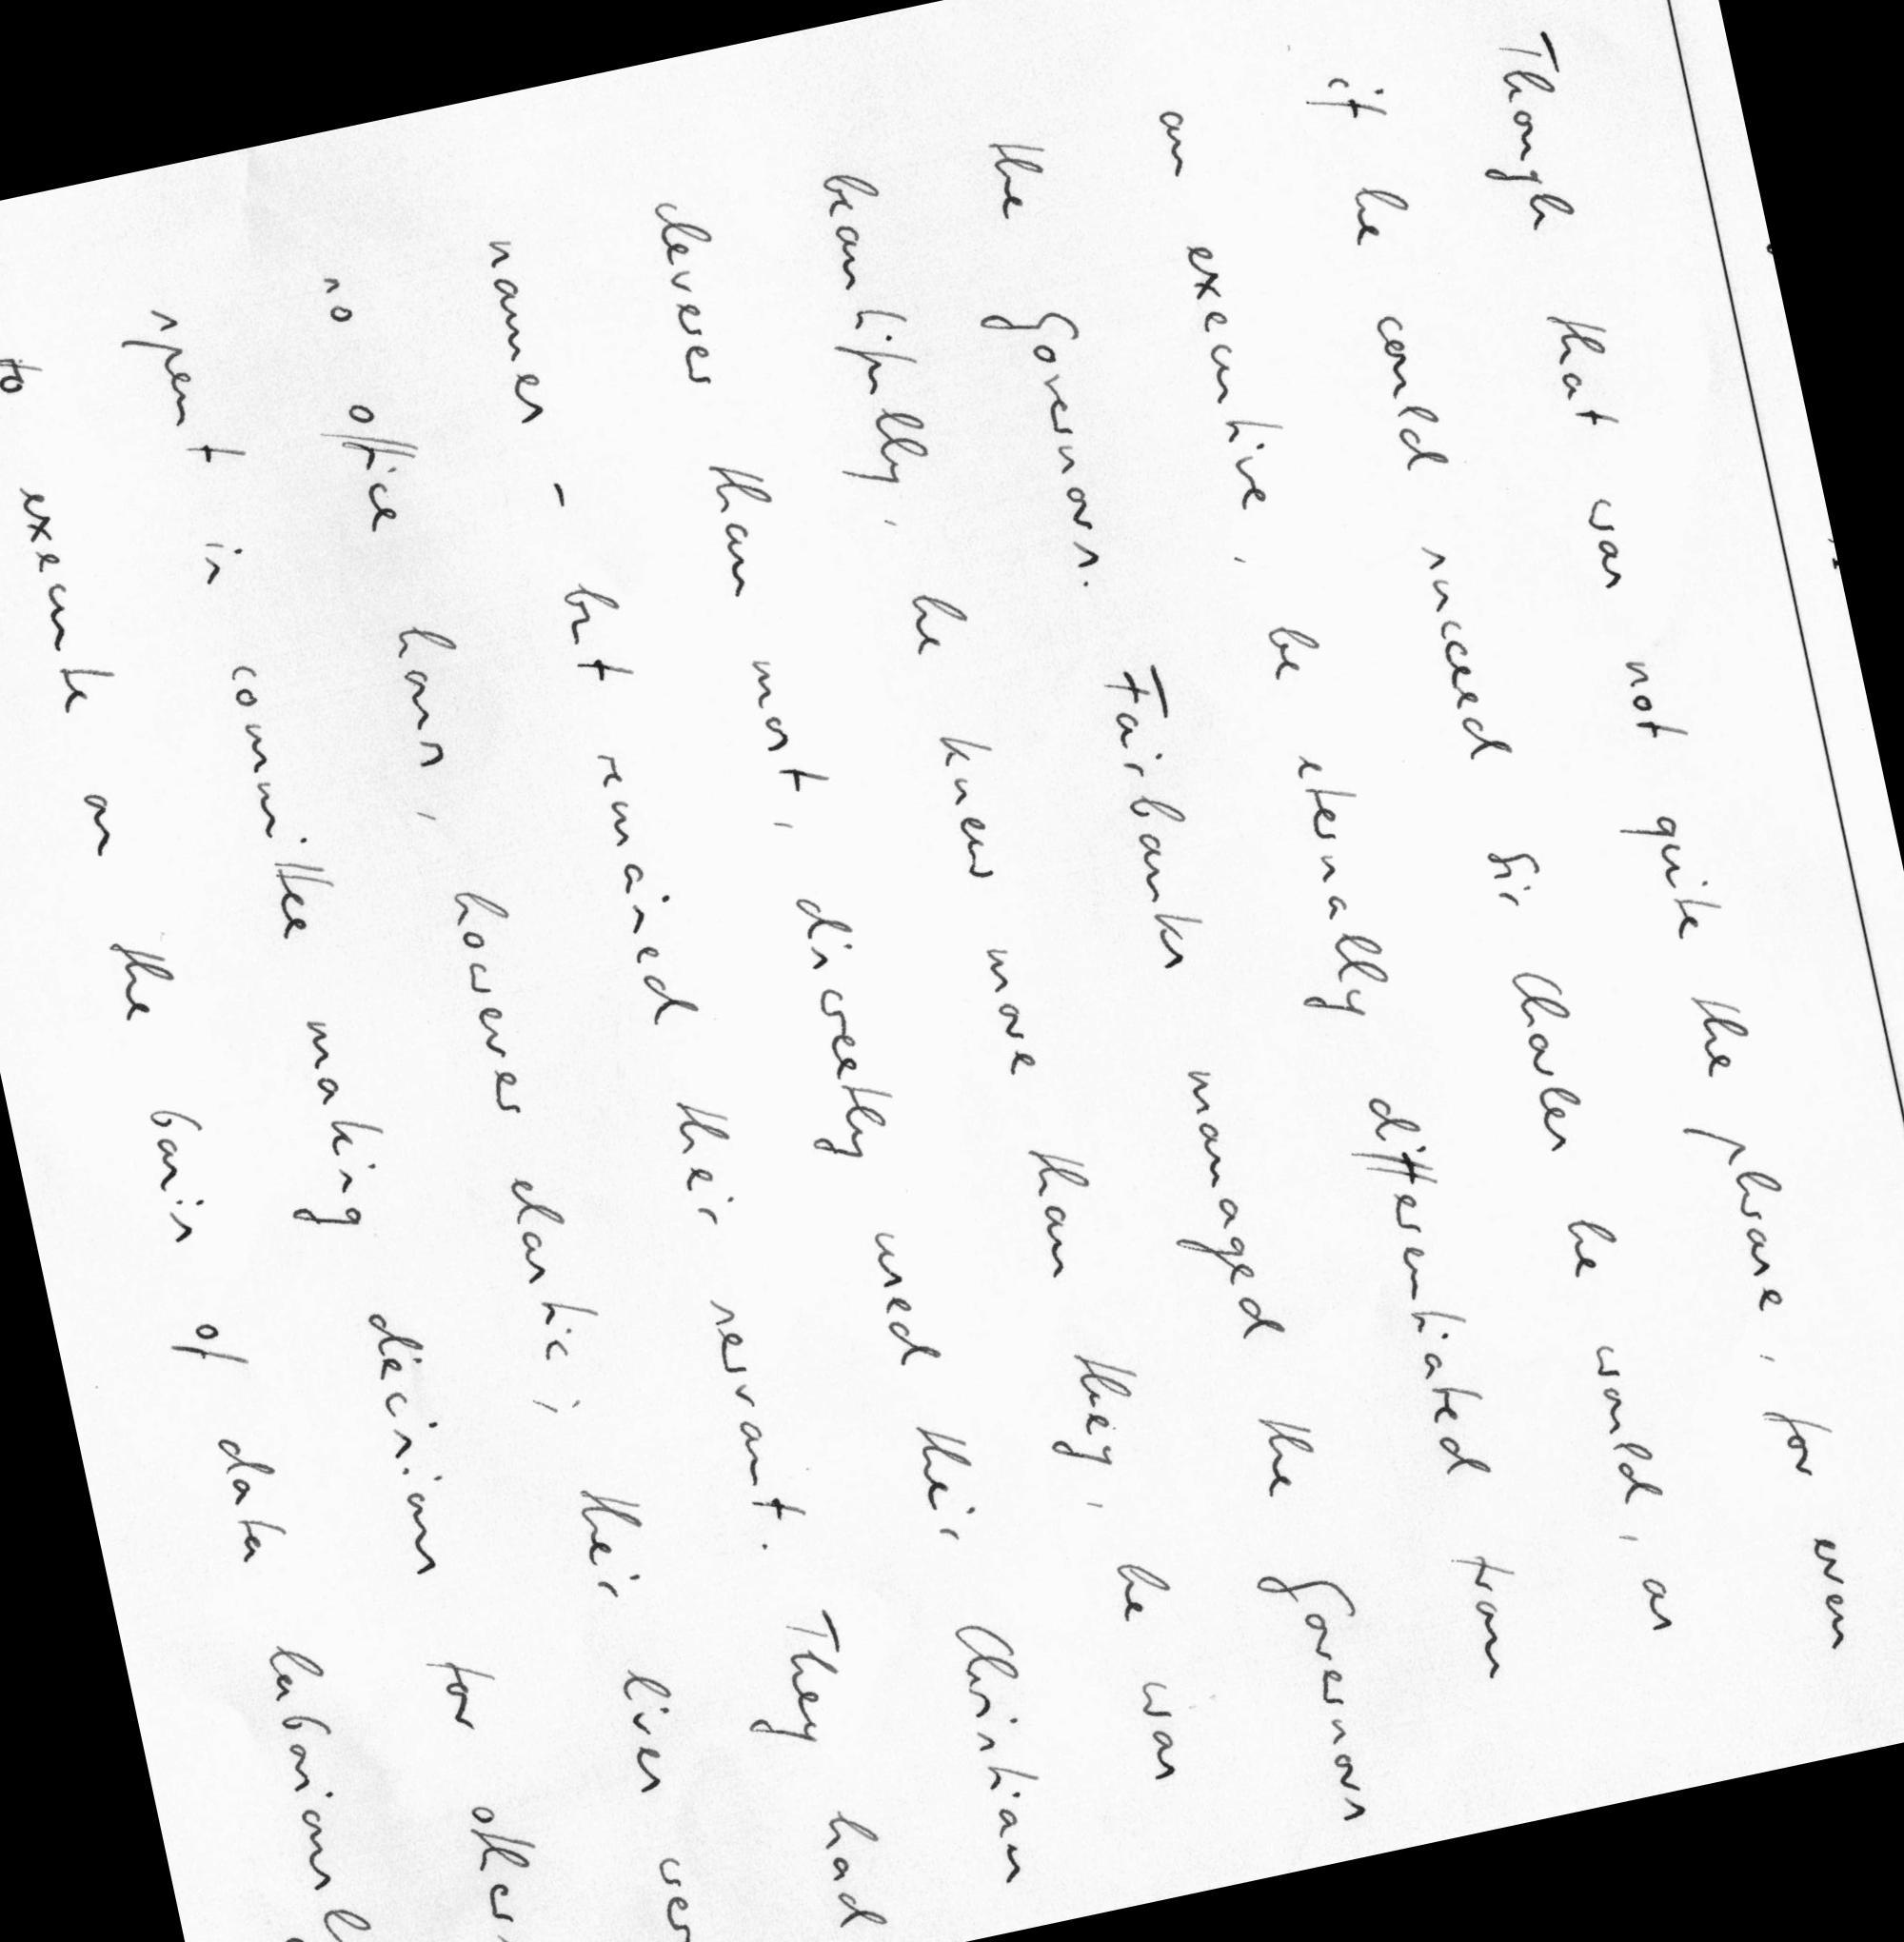 Though that was not quite the phrase, for even
if he could succeed Sir Charles he would, as
an executive, be eternally differentiated from
the Governors. Fairbanks managed the Governors
beautifully, he knew more than they, he was
cleverer than most, discreetly used their Christian
names - but remained their servant. They had
no office hours, however elastic; their lives wer
spent in committee making decisions for other
to execute on the basis of data laboriousl